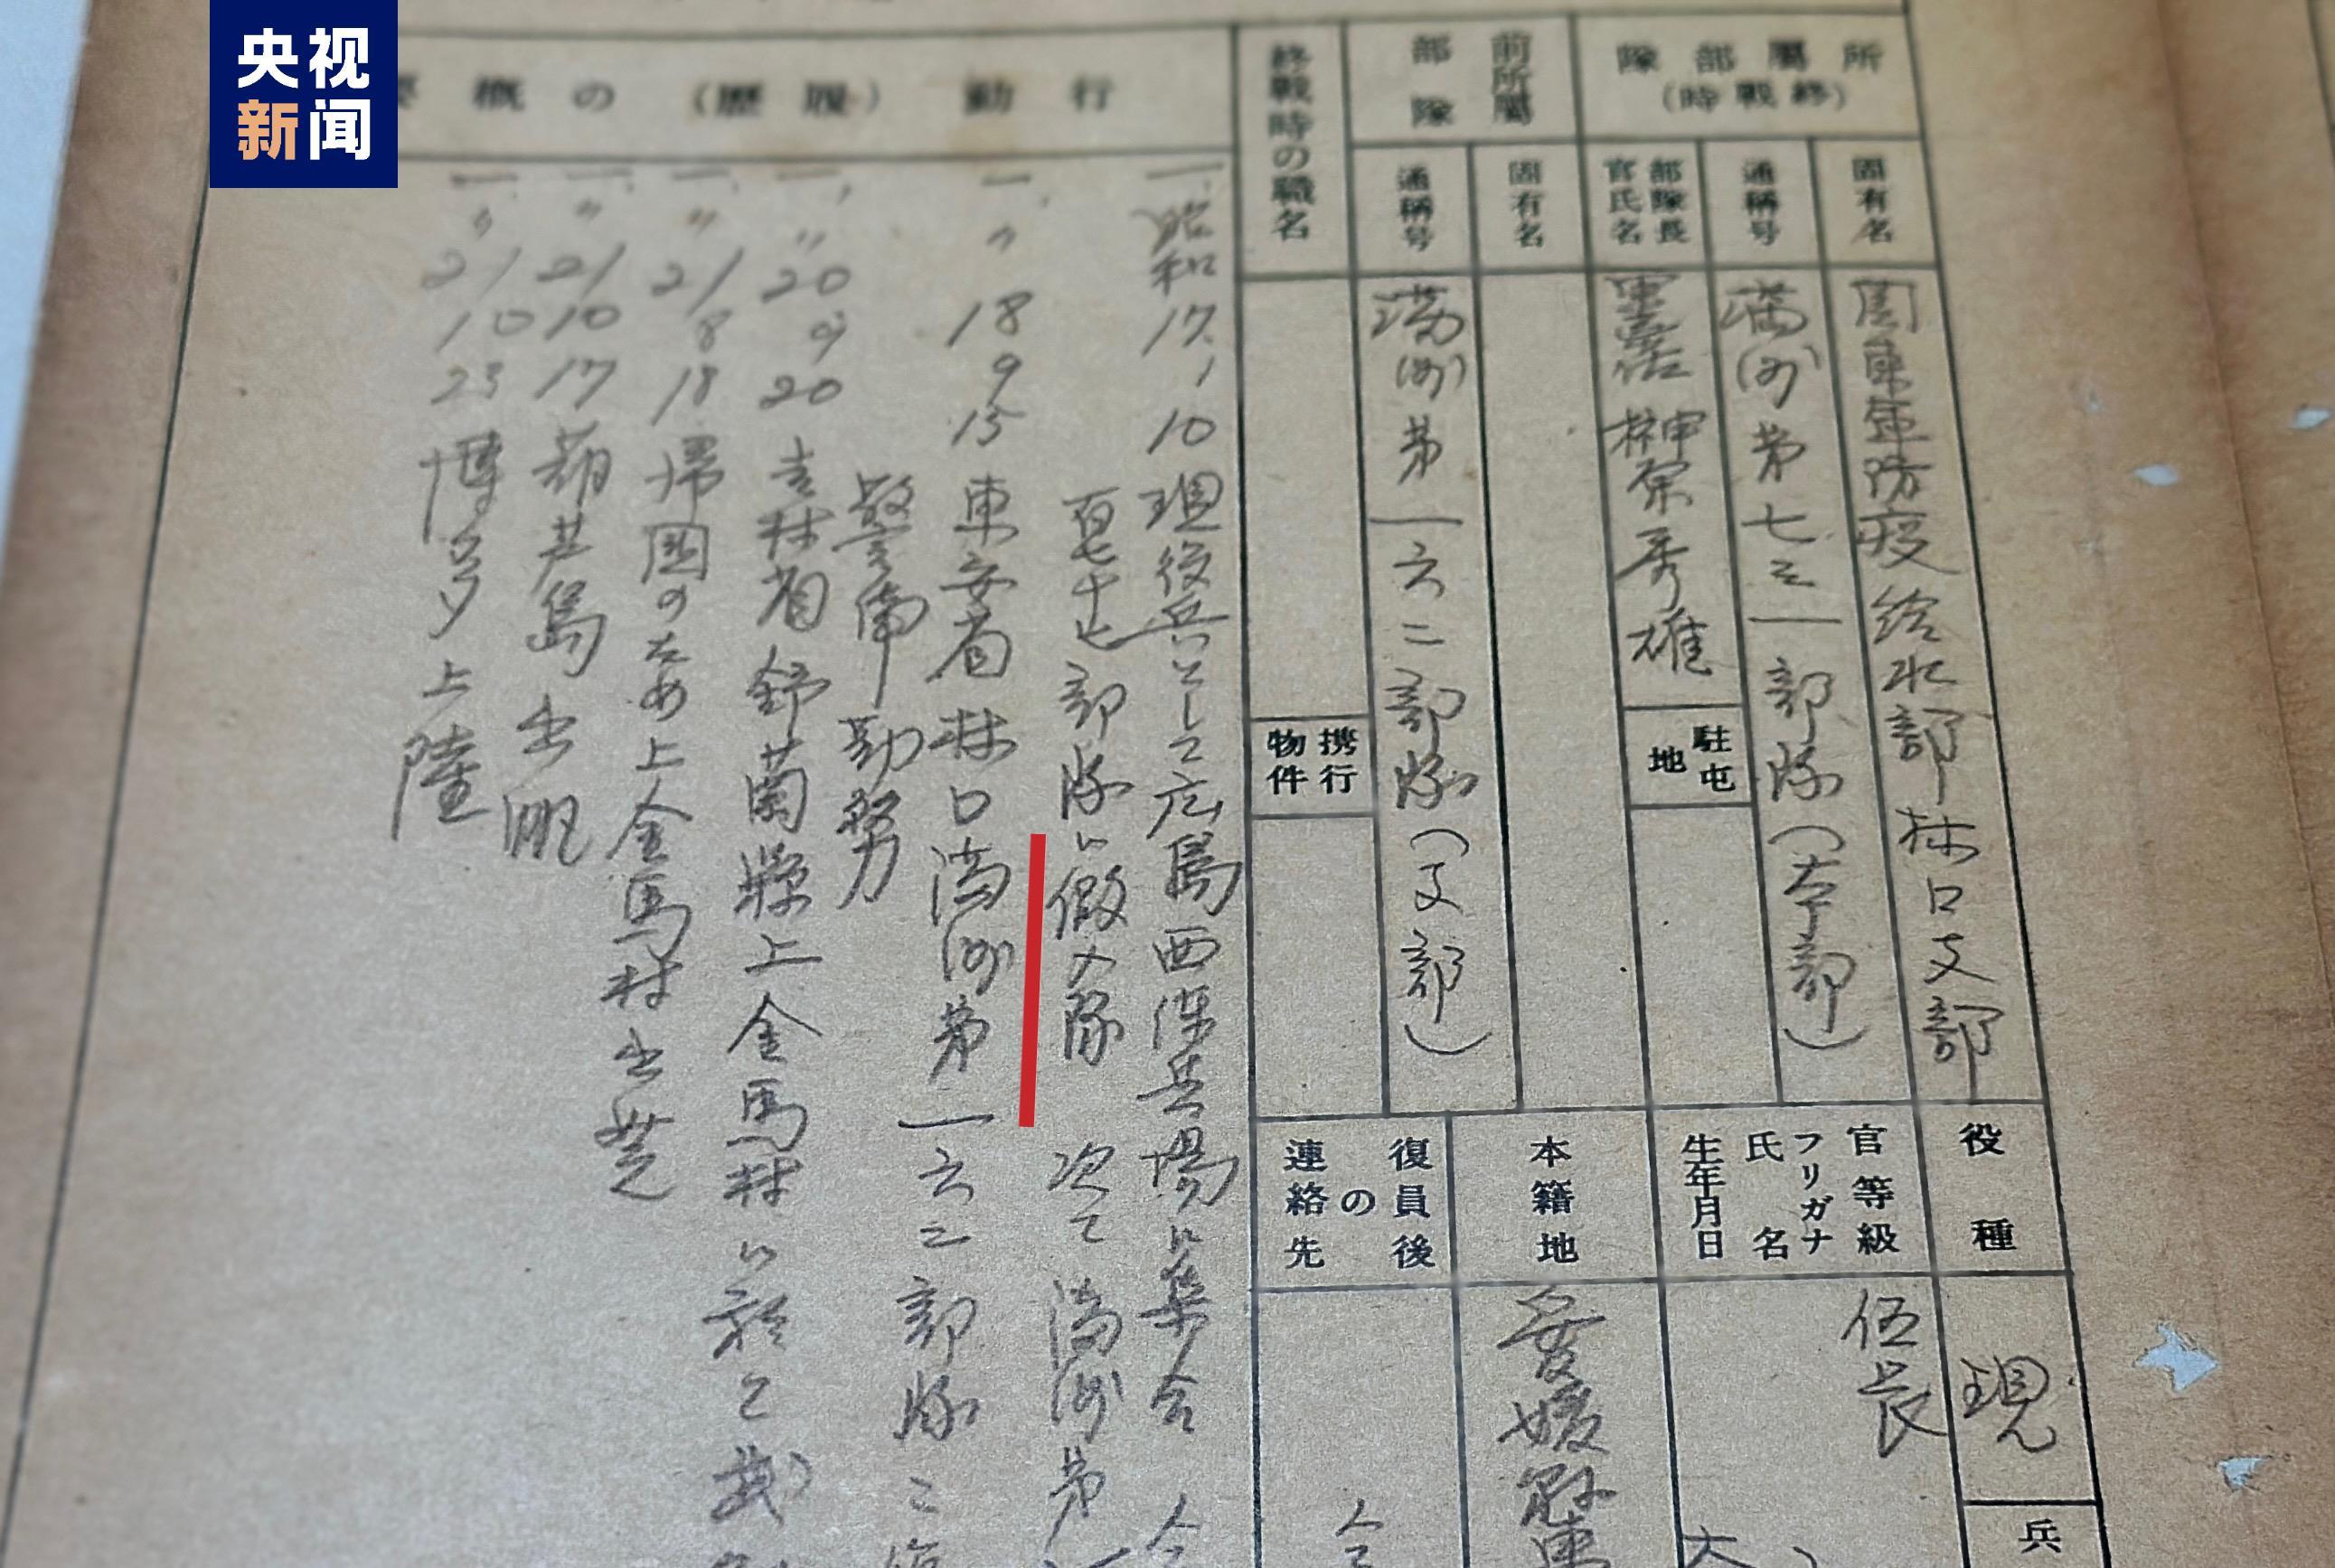 央视
新闻
所屬部隊
(終戰時)
固有名
關東軍防疫給水部林口支部
通稱号
満州第七三一部隊(本部)
部隊長
官氏名
軍医 榊原秀雄
駐屯地
前所屬
部隊
固有名
通稱号
満州第一六二部隊(支部)
終戰時の職名
携行
物件
役種
現
兵
官等級
伍長
フリガナ
氏名
生年月日
本籍地
愛媛縣
復員後
の
連絡先
行動(履歷)の概要
一、昭和17.1.10 現役兵として広島西練兵場に集合
百七十七部隊に仮入隊 次て満州第
一、〃18 9 15 東安省林口満州第一六二部隊ニ
警備勤努
一、〃20 9 20 吉林省舒蘭縣上金馬村に於て武
一、〃21 8 18 帰国のため上金馬村出発
一、〃21 10 17 葫芦島出帆
一、〃21 10 23 博多上陸